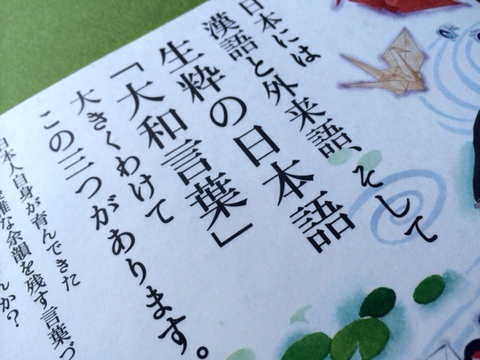 日本には
漢語と外来語、そして
生粋の日本語
「大和言葉」
大きくわけて
この三つがあります。
日本人自身が育んできた
な余韻を残す言葉づ
んか？